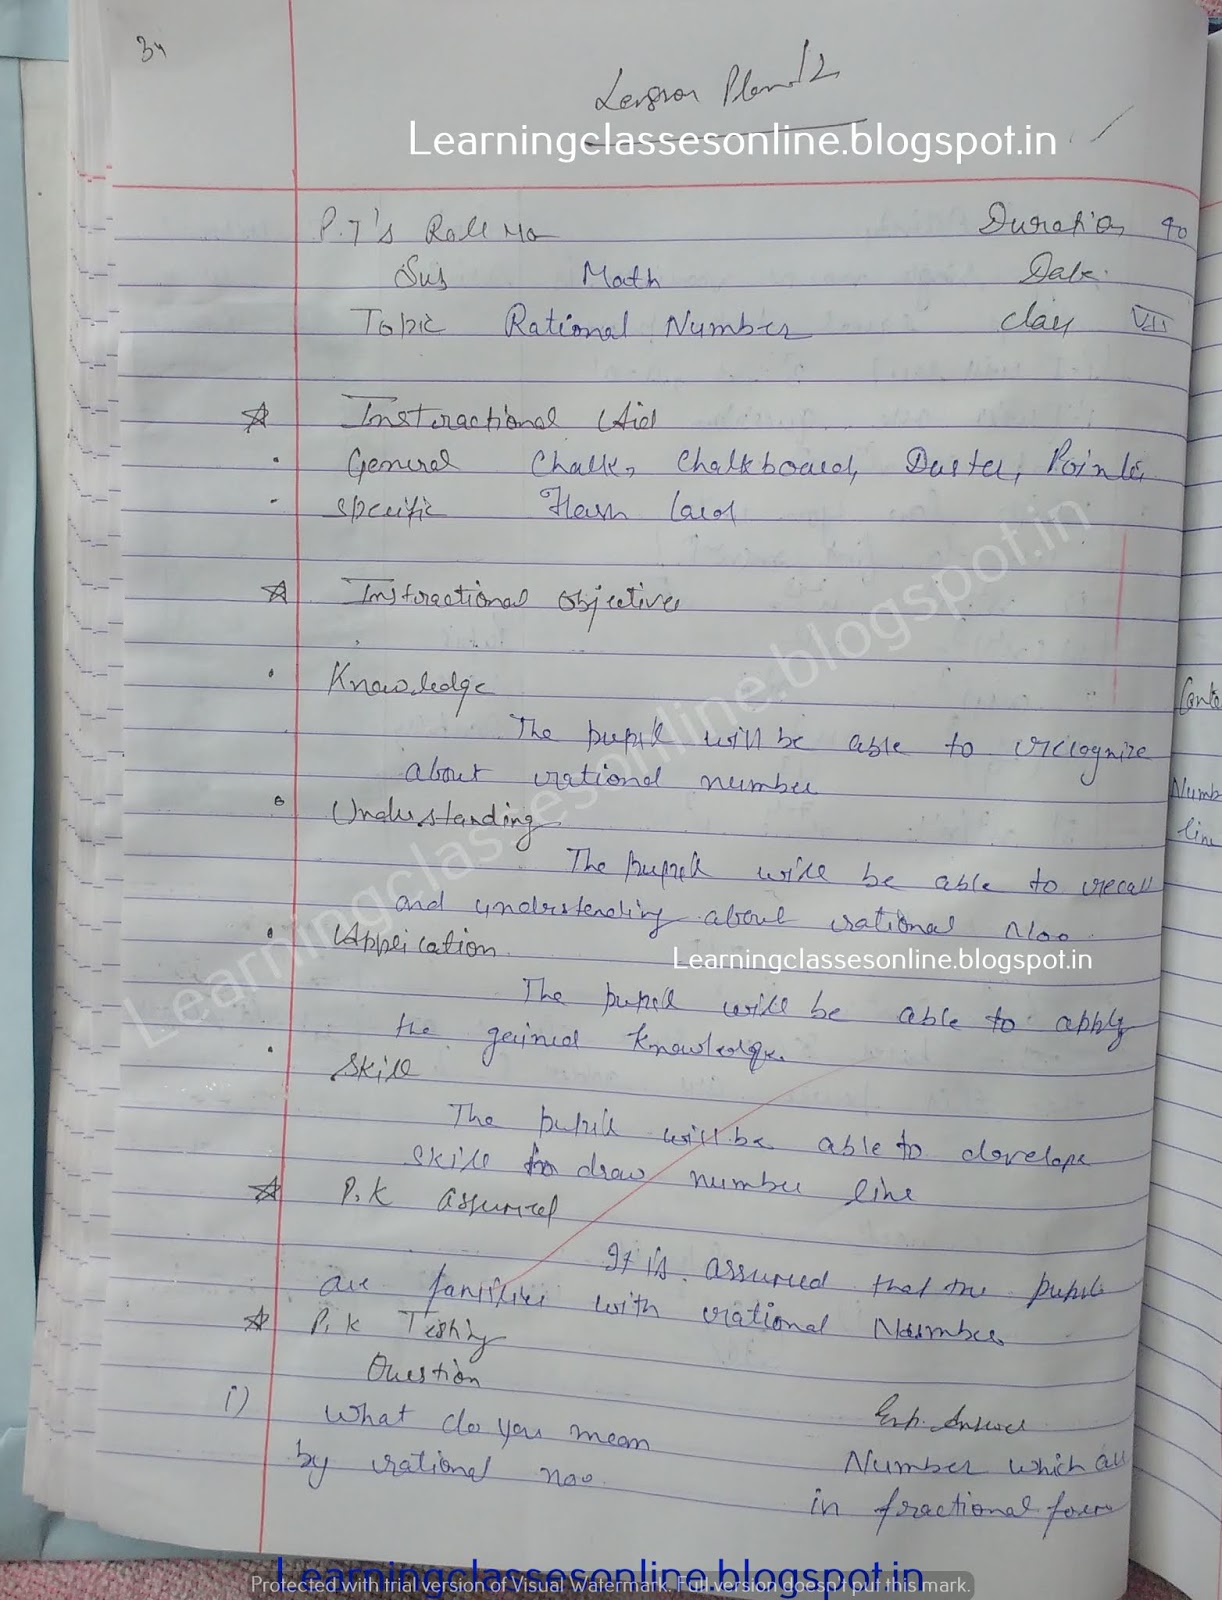 34
Lesson Plan 12
Learningclassesonline.blogspot.in
P.T's Roll No Duration 40
Sub Math Date.
Topic Rational Number Class VII
Instructional Aid
General Chalk, Chalkboard, Duster, Pointer
Specific Flash Card
Instructional objectives
Knowledge
The pupil will be able to recognize
about rational number
Understanding
The pupil will be able to recall
and understanding about rational Noo
Application
Learningclassesonline.blogspot.in
The pupil will be able to apply
the gained knowledge.
Skill
The pupil will be able to develope
skill to draw number line
P.K assumed
It is assumed that the pupil
are familiar with rational Number
P.K Testing
Question Exp. Answer
i) What do you mean Number which are
by rational noo. in fractional form
Conte
Numb
line
Learningclassesonline.blogspot.in
Learningclassesonline.blogspot.in
Protected with trial version of Visual Watermark. Full version doesn't put this mark.